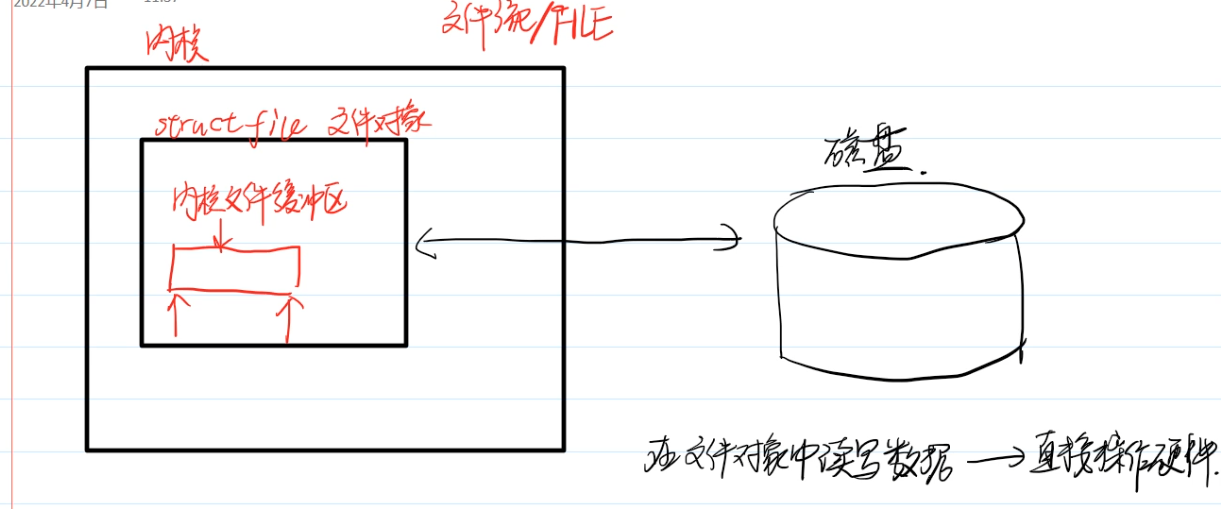 2022年4月7日 11:37
文件流/FILE
内核
struct file 文件对象
磁盘.
内核文件缓冲区
在文件对象中读写数据 → 直接操作硬件.